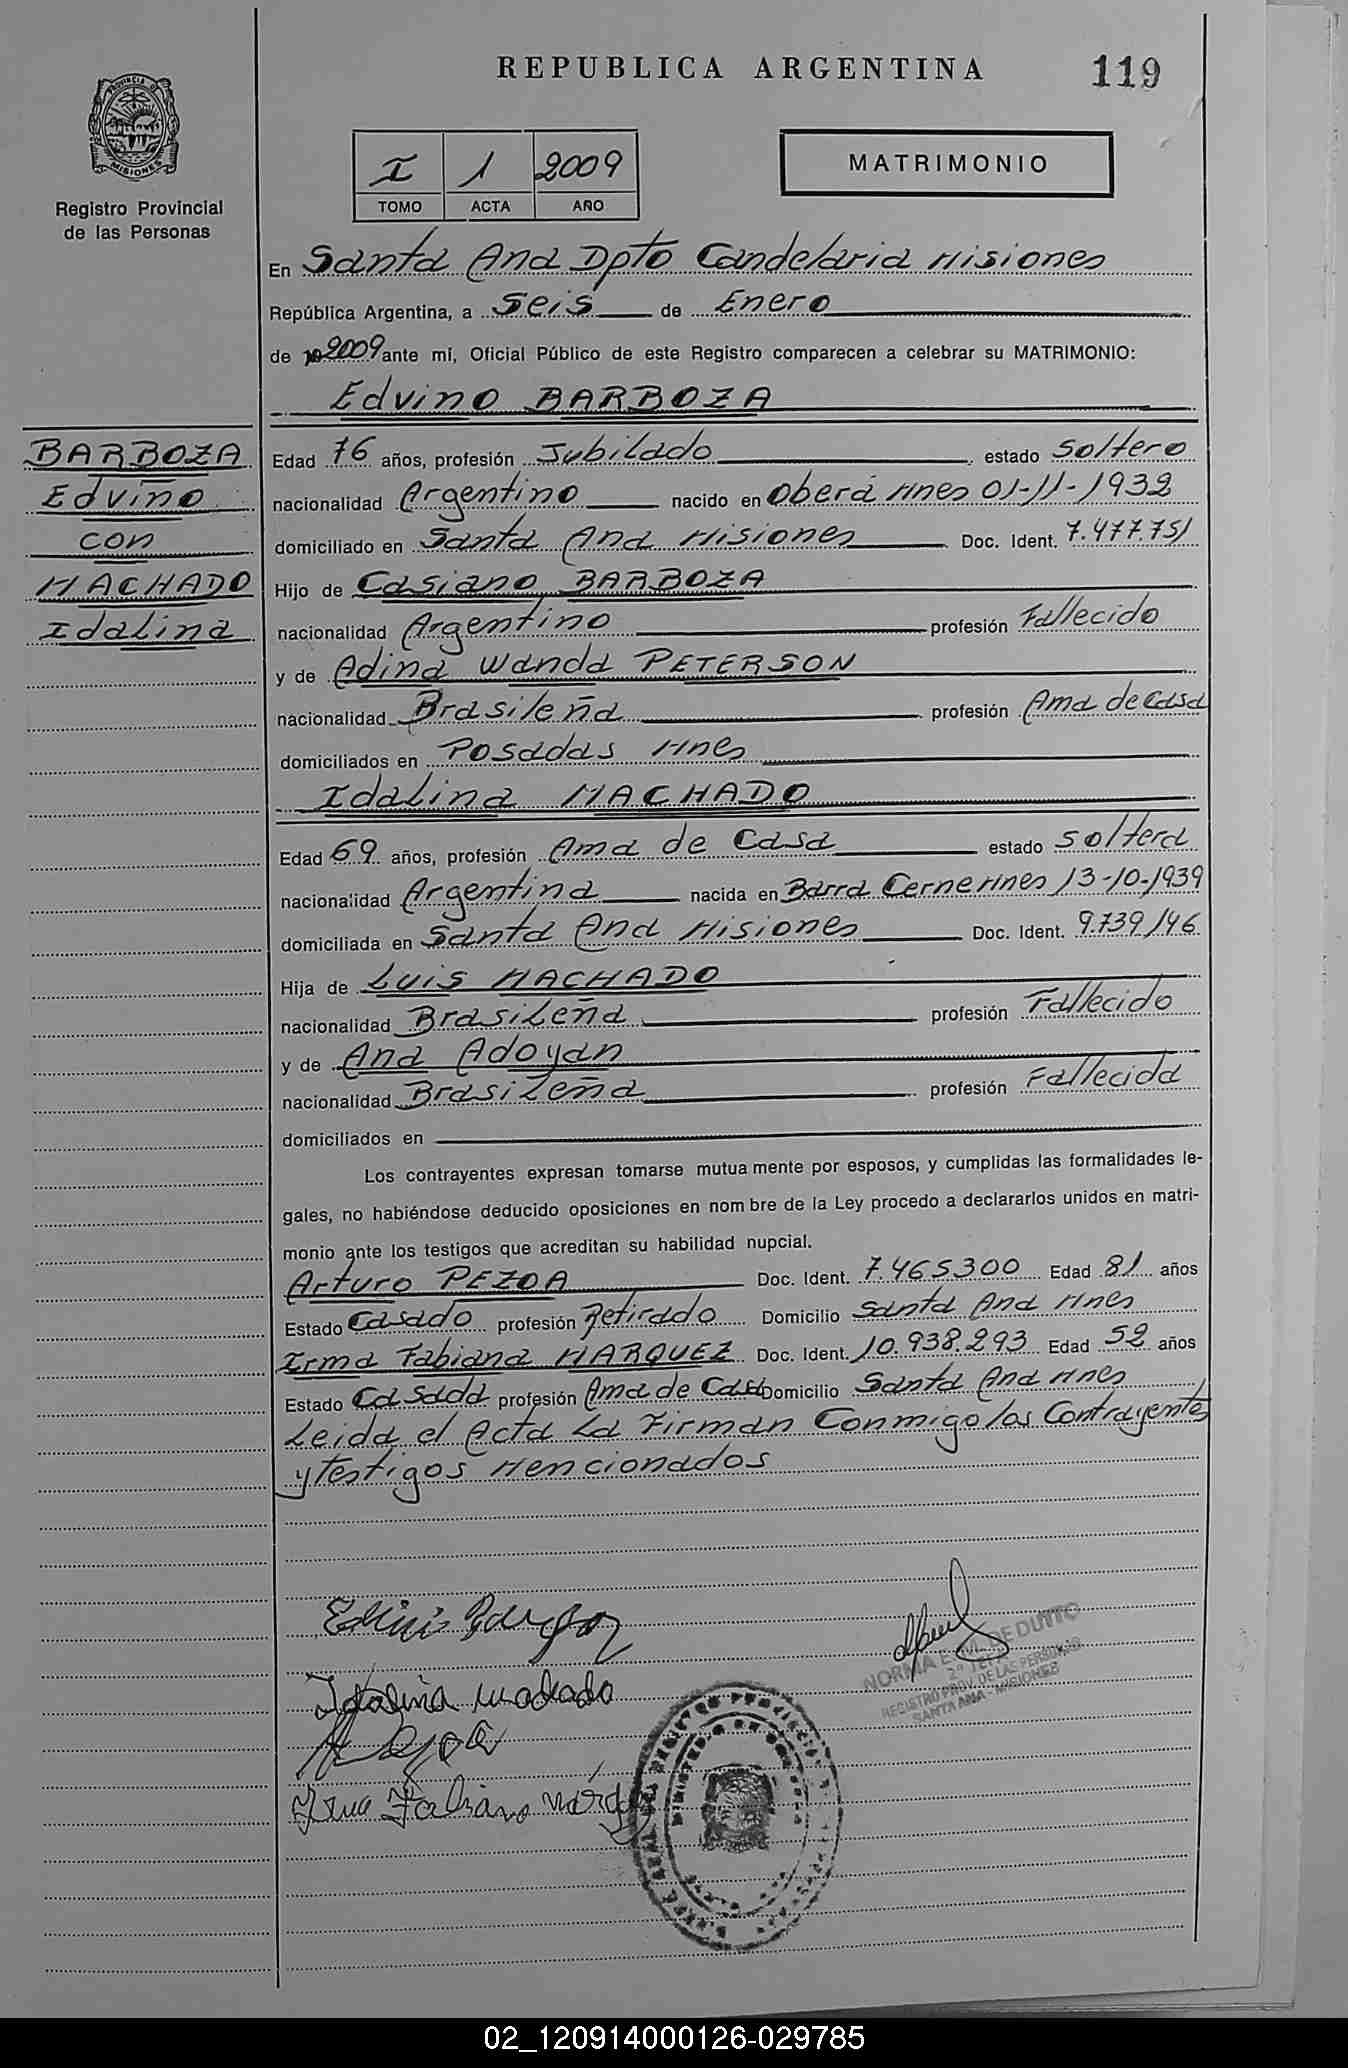 REPUBLICA ARGENTINA
119
PROVINCIA DE
MISIONES
Registro Provincial
de las Personas
I 1 2009
TOMO ACTA AÑO
MATRIMONIO
En Santa Ana Dpto Candelaria Misiones
República Argentina, a Seis de Enero
de 2009 ante mí, Oficial Público de este Registro comparecen a celebrar su MATRIMONIO:
Edvino BARBOZA
BARBOZA
Edvino
con
MACHADO
Idalina
Edad 76 años, profesión Jubilado estado Soltero
nacionalidad Argentino nacido en Oberá Mnes 01-11-1932
domiciliado en Santa Ana Misiones Doc. Ident. 7.477.751
Hijo de Casiano BARBOZA
nacionalidad Argentino profesión Fallecido
y de Adina Wanda PETERSON
nacionalidad Brasileña profesión Ama de Casa
domiciliados en Posadas Mnes
Idalina MACHADO
Edad 69 años, profesión Ama de Casa estado Soltera
nacionalidad Argentina nacida en Barra Cerne Mnes 13-10-1939
domiciliada en Santa Ana Misiones Doc. Ident. 9.739.146
Hija de Luis MACHADO
nacionalidad Brasileña profesión Fallecido
y de Ana Adoyan
nacionalidad Brasileña profesión Fallecida
domiciliados en
Los contrayentes expresan tomarse mutua mente por esposos, y cumplidas las formalidades le-
gales, no habiéndose deducido oposiciones en nom bre de la Ley procedo a declararlos unidos en matri-
monio ante los testigos que acreditan su habilidad nupcial.
Arturo PEZOA Doc. Ident. 7.465300 Edad 81 años
Estado Casado profesión Retirado Domicilio Santa Ana Mnes
Irma Fabiana MARQUEZ Doc. Ident. 10.938.293 Edad 52 años
Estado Casada profesión Ama de Casa Domicilio Santa Ana Mnes
Leida el Acta La Firman Conmigo los Contrayentes
y Testigos Mencionados
Idalina Machado
Irma Fabiana
NORMA E. M. DE DUTTO
REGISTRO PROV. DE LAS PERSONAS
SANTA ANA - MISIONES
02_120914000126-029785